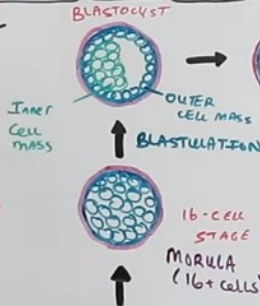 BLASTOCYST
Inner
Cell
mass
OUTER
CELL MASS
BLASTULATION
16-CELL
STAGE
MORULA
(16+cells)